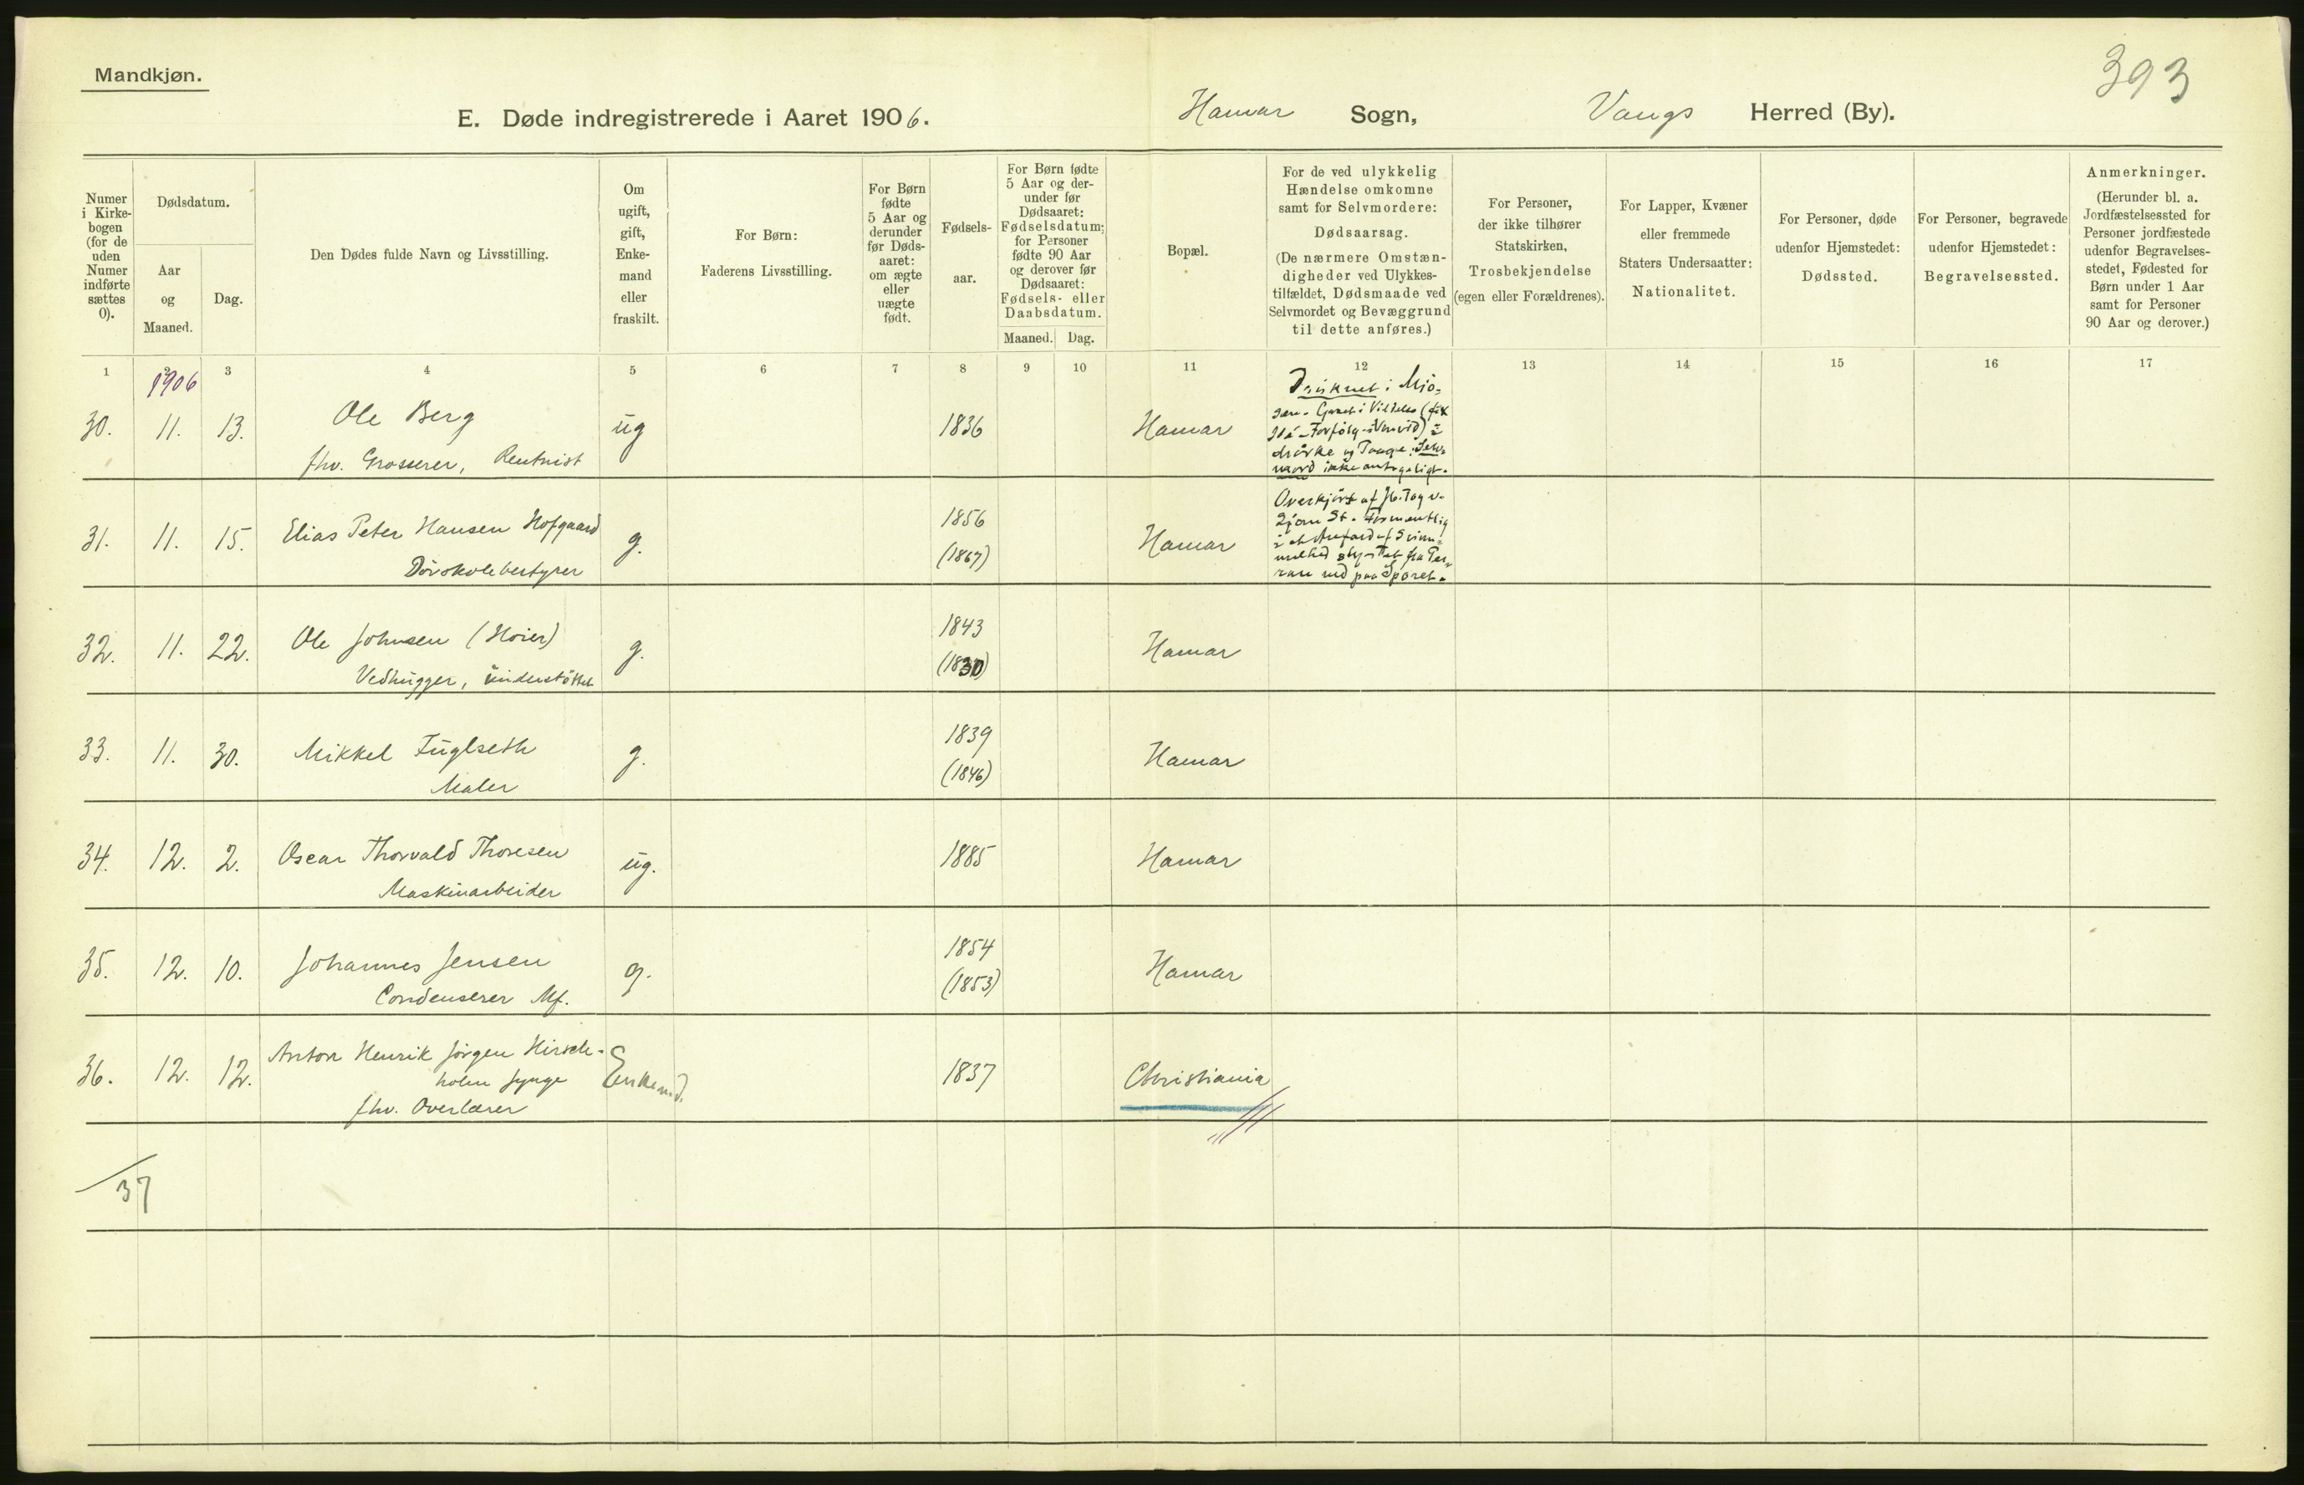 393
Mandkjøn.
E. Døde indregistrerede i Aaret 1906. Hamar Sogn, Vangs Herred (By).
Numer i Kirke-bogen (for de uden Numer indførte sættes 0).
Dødsdatum.
Aar og Maaned.
Dag.
Den Dødes fulde Navn og Livsstilling.
Om ugift, gift, Enke-mand eller fraskilt.
For Børn: Faderens Livsstilling.
For Børn fødte 5 Aar og derunder før Døds-aaret: om ægte eller uægte født.
Fødsels-aar.
For Børn fødte 5 Aar og der-under før Dødsaaret: Fødselsdatum; for Personer fødte 90 Aar og derover før Dødsaaret: Fødsels- eller Daabsdatum.
Maaned. Dag.
Bopæl.
For de ved ulykkelig Hændelse omkomne samt for Selvmordere: Dødsaarsag. (De nærmere Omstæn-digheder ved Ulykkes-tilfældet, Dødsmaade ved Selvmordet og Bevæggrund til dette anføres.)
For Personer, der ikke tilhører Statskirken, Trosbekjendelse (egen eller Forældrenes).
For Lapper, Kvæner eller fremmede Staters Undersaatter: Nationalitet.
For Personer, døde udenfor Hjemstedet: Dødssted.
For Personer, begravede udenfor Hjemstedet: Begravelsessted.
Anmerkninger. (Herunder bl. a. Jordfæstelsessted for Personer jordfæstede udenfor Begravelses-stedet, Fødested for Børn under 1 Aar samt for Personer 90 Aar og derover.)
1 2 3 4 5 6 7 8 9 10 11 12 13 14 15 16 17
1906
30. 11. 13. Ole Berg ug 1836 Hamar
fhv. Grosserer, Rentnist
Druknet i Mjø-
sen - Gaaet i Vildelse (fix
Idé - Forfølg
drikke og
mord ikke antageligt.
31. 11. 15. Elias Peter Hansen Hofgaard g. 1856 (1867) Hamar
Døvskolebestyrer
Overkjørt af Jb.Tog v.
St. formentlig
i et Anfald af Svim-
melhed styrtet fra Per-
ron ned paa Sporet.
32. 11. 22. Ole Johnsen (Hoier) g. 1843 (1830) Hamar
Vedhugger, understøttet
33. 11. 30. Mikkel Fuglseth g. 1839 (1846) Hamar
Maler
34. 12. 2. Oscar Thorvald Thoresen ug. 1885 Hamar
Maskinarbeider
35. 12. 10. Johannes Jensen g. 1854 (1853) Hamar
Condenserer Mf.
36. 12. 12. Anton Henrik Jørgen Hirsch- Enkemd. 1837 Christiania
holm Synge
fhv. Overlærer
37